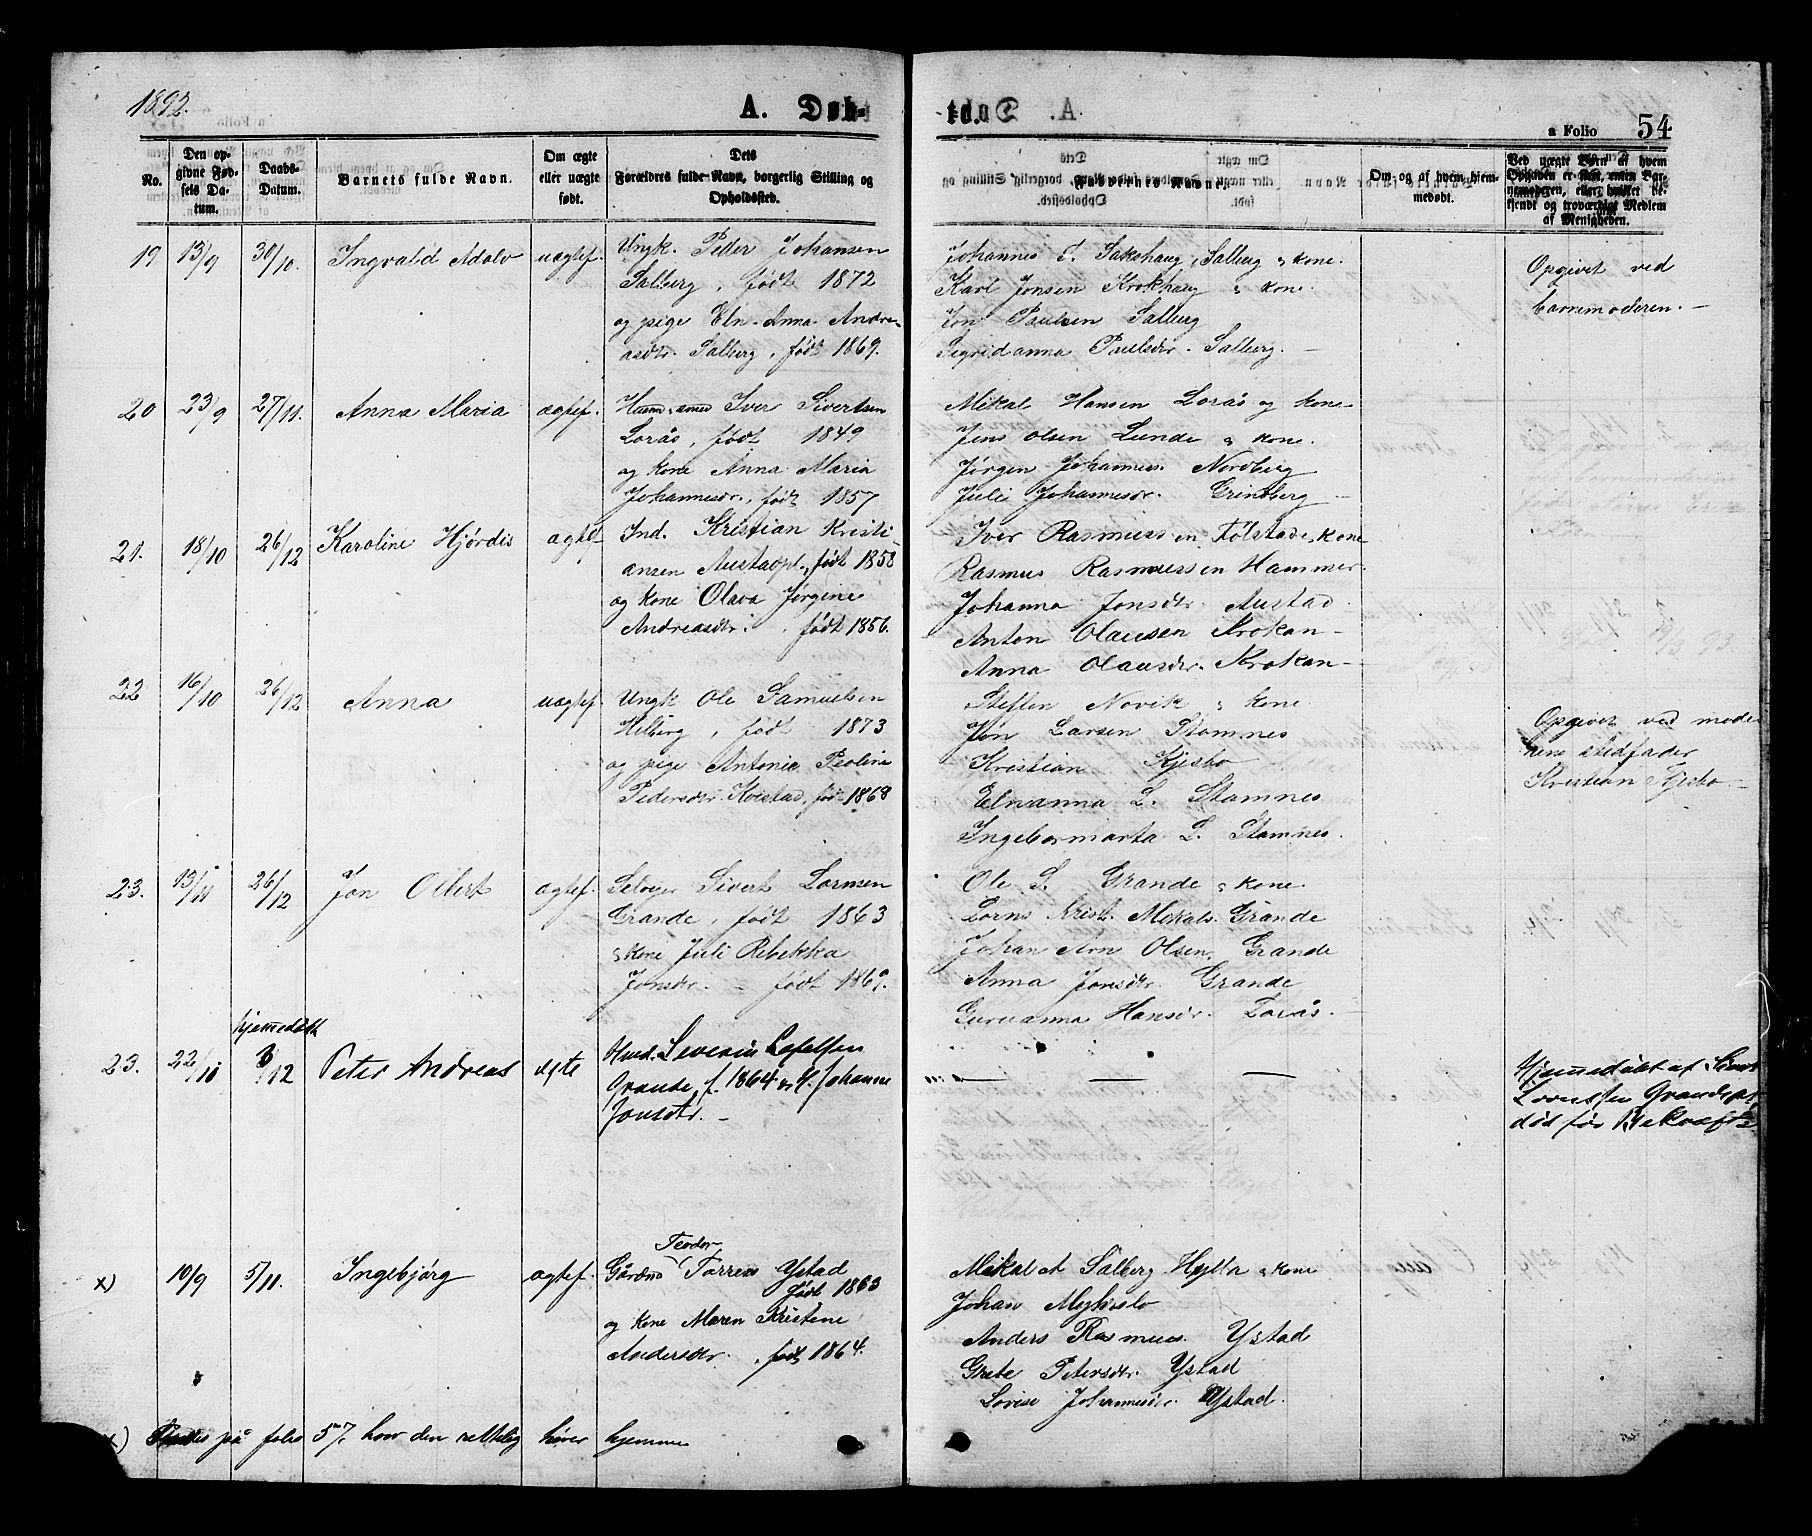 1892.
A. Døb-
bt.
a Folio 54
No.
Den op-
givne Fød-
sels Da-
tum.
Daabs-
Datum.
Barnets fulde Navn.
Om ægte
eller uægte
født.
Dets
Forældres fulde Navn, borgerlig Stilling og
Opholdssted.
Faddernes Navne.
Om og af hvem hjem-
medøbt.
Ved uægte Børn af hvem
Opgaven er sket, uden Bar-
nemoderen, eller hvilket be-
kjendt og troværdigt Medlem
af Menigheden.
19 13/9 30/10. Ingvald Adolv uægtef.
Ungk. Peter Johansen
Salberg, født 1872
og pige Eln. Anna Andre-
asdtr. Salberg, født 1869.
Johannes J. Sakshaug, Salberg & kone.
Karl Jonsen Krokhaug & kone
Jon Paulsen Salberg
Sigridanna Paulsdtr. Salberg. —
Opgivet ved
barnemoderen. —
20 23/9 27/11. Anna Maria ægtef.
Iver Sivertsen
Lorås, født 1849
og kone Anna Maria
Johannesdr., født 1857
Mikal Hansen Lorås og kone
Jens Olsen Lunde & kone.
Jørgen Johannes. Nordberg
Juli Johannesdr. Grindberg —
21. 18/10 26/12 Karoline Hjørdis ægtef.
Ind. Kristian Kristi-
ansen Austadpl., født 1858
og kone Olava Jørgine
Andreasdtr. , født 1856.
Iver Rasmussen Følstad & kone
Rasmus Rasmussen Hammer.
Johanna Jonsdtr. Austad.
Anton Olausen Krokan —
Anna Olausdtr. Krokan —
22 16/10 26/12 Anna uægtef.
Ungk Ole Samuelsen
Hilberg, født 1873
og pige Antonia Peoline
Pedersdtr. Kvistad, født 1868
Steffen Novik & kone
Jon Larsen Stamnes
Kristian Kjesbo
Elnanna L. Stamnes
Ingebormarta L. Stamnes.
Opgivet ved mode
rens stedfader
Kristian Kjesbo —
23. 13/11 26/12 Jon Olbert ægtef.
Selveier Sivert Lornsen
Grande, født 1863
& kone Juli Rebekka
Jonsdr. — født 1869.
Ole S. Grande & kone.
Lorns Krist. Mikals. Grande
Johan Arn Olsen, Grande
Anna Jonsdtr. Grande
Guruanna Hansdr. Lorås.
hjemmedøbt
23. 22/11 3/12 Peter Andreas ægte
Husd. Severin
Grande, f. 1864 & H. Johanne
Jonsdtr. —
— — —
Hjemmedøbt af
Lorntsen Grande
død før
x) 10/9 5/11. Ingebjørg ægtef.
Teodor
Gårdmd Torres Ystad
født 1863
og kone Maren Kristine
Andersdtr. , født 1864.
Mikal A Salberg Hylla & kone
Johan Myhrslo
Anders Rasmus. Ystad
Grete Petersdtr. Ystad
Lovise Johannesdr. Ystad.
x) på folio 57, hvor den rettelig hører hjemme